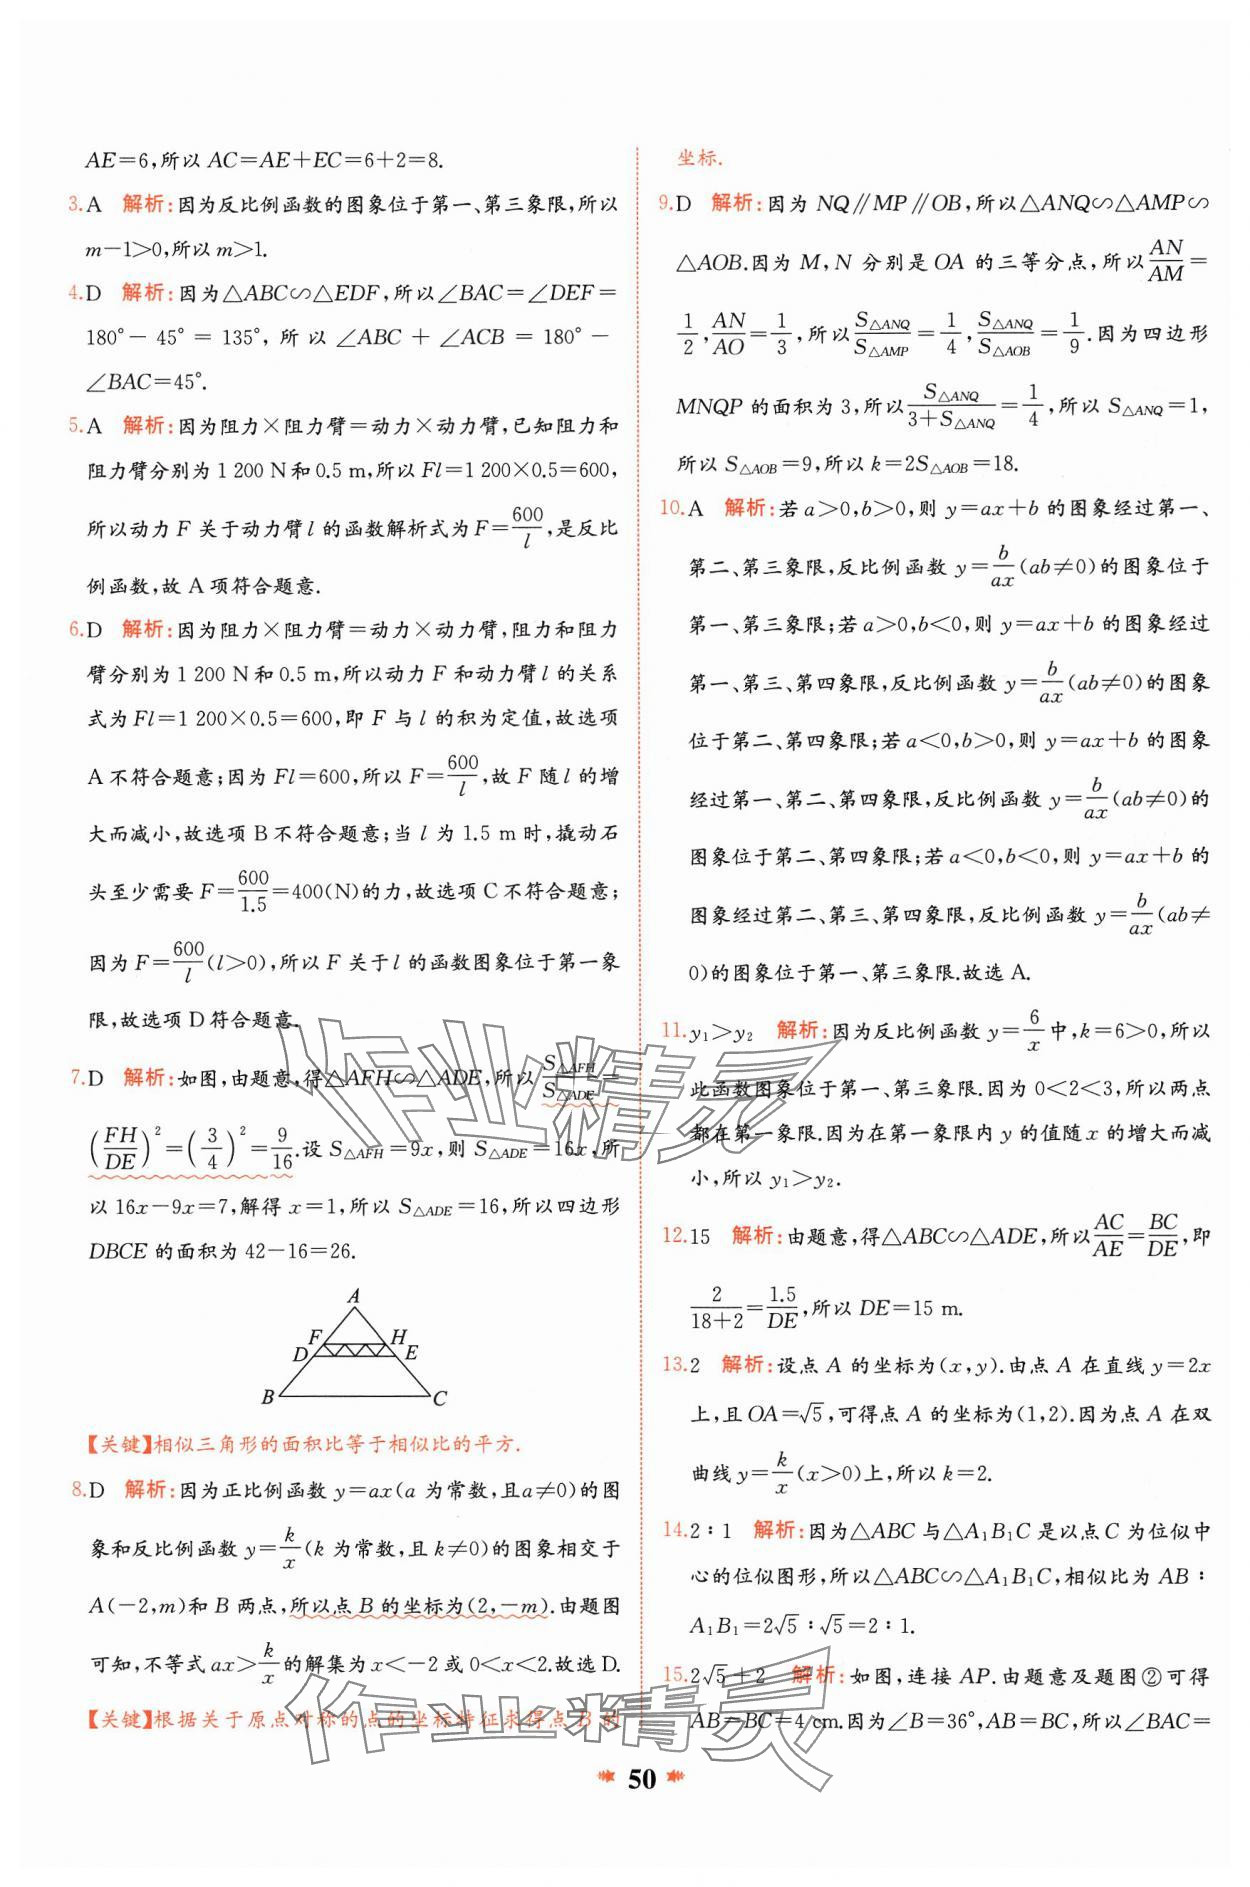 AE=6,所以 AC=AE+EC=6+2=8.
3.A 解析:因为反比例函数的图象位于第一、第三象限,所以
m-1>0,所以 m>1.
4.D 解析:因为△ABC∽△EDF,所以∠BAC=∠DEF=
180°- 45° = 135°, 所 以 ∠ABC + ∠ACB = 180° -
∠BAC=45°.
5.A 解析:因为阻力×阻力臂=动力×动力臂,已知阻力和
阻力臂分别为 1 200 N 和 0.5 m,所以 Fl=1 200×0.5=600,
所以动力 F 关于动力臂 l 的函数解析式为 F=600/l,是反比
例函数,故 A 项符合题意.
6.D 解析:因为阻力×阻力臂=动力×动力臂,阻力和阻力
臂分别为 1 200 N 和 0.5 m,所以动力 F 和动力臂 l 的关系
式为 Fl=1 200×0.5=600,即 F 与 l 的积为定值,故选项
A 不符合题意;因为 Fl=600,所以 F=600/l,故 F 随 l 的增
大而减小,故选项 B 不符合题意;当 l 为 1.5 m 时,撬动石
头至少需要 F=600/1.5=400(N)的力,故选项 C 不符合题意;
因为 F=600/l(l>0),所以 F 关于 l 的函数图象位于第一象
限,故选项 D 符合题意.
7.D 解析:如图,由题意,得△AFH∽△ADE,所以 S△AFH/S△ADE=
(FH/DE)²=(3/4)²=9/16.设 S△AFH=9x,则 S△ADE=16x,所
以 16x-9x=7,解得 x=1,所以 S△ADE=16,所以四边形
DBCE 的面积为 42-16=26.
A
F H
D E
B C
【关键】相似三角形的面积比等于相似比的平方.
8.D 解析:因为正比例函数 y=ax(a 为常数,且 a≠0)的图
象和反比例函数 y=k/x(k 为常数,且 k≠0)的图象相交于
A(-2,m)和 B 两点,所以点 B 的坐标为(2,-m).由题图
可知,不等式 ax>k/x的解集为 x<-2 或 0<x<2.故选 D.
【关键】根据关于原点对称的点的坐标特征求得点 B 的
坐标.
9.D 解析:因为 NQ∥MP∥OB,所以△ANQ∽△AMP∽
△AOB.因为 M,N 分别是 OA 的三等分点,所以AN/AM=
1/2,AN/AO=1/3,所以S△ANQ/S△AMP=1/4,S△ANQ/S△AOB=1/9.因为四边形
MNQP 的面积为 3,所以S△ANQ/(3+S△ANQ)=1/4,所以 S△ANQ=1,
所以 S△AOB=9,所以 k=2S△AOB=18.
10.A 解析:若 a>0,b>0,则 y=ax+b 的图象经过第一、
第二、第三象限,反比例函数 y=b/ax(ab≠0)的图象位于
第一、第三象限;若 a>0,b<0,则 y=ax+b 的图象经过
第一、第三、第四象限,反比例函数 y=b/ax(ab≠0)的图象
位于第二、第四象限;若 a<0,b>0,则 y=ax+b 的图象
经过第一、第二、第四象限,反比例函数 y=b/ax(ab≠0)的
图象位于第二、第四象限;若 a<0,b<0,则 y=ax+b 的
图象经过第二、第三、第四象限,反比例函数 y=b/ax(ab≠
0)的图象位于第一、第三象限.故选 A.
11.y₁>y₂ 解析:因为反比例函数 y=6/x中,k=6>0,所以
此函数图象位于第一、第三象限.因为 0<2<3,所以两点
都在第一象限.因为在第一象限内 y 的值随 x 的增大而减
小,所以 y₁>y₂.
12.15 解析:由题意,得△ABC∽△ADE,所以AC/AE=BC/DE,即
2/(18+2)=1.5/DE,所以 DE=15 m.
13.2 解析:设点 A 的坐标为(x,y).由点 A 在直线 y=2x
上,且 OA=√5,可得点 A 的坐标为(1,2).因为点 A 在双
曲线 y=k/x(x>0)上,所以 k=2.
14.2∶1 解析:因为△ABC 与△A₁B₁C 是以点 C 为位似中
心的位似图形,所以△ABC∽△A₁B₁C,相似比为 AB∶
A₁B₁=2√5∶√5=2∶1.
15.2√5+2 解析:如图,连接 AP.由题意及题图②可得
AB=BC=4 cm.因为∠B=36°,AB=BC,所以∠BAC=
50
作业精灵
作业精灵